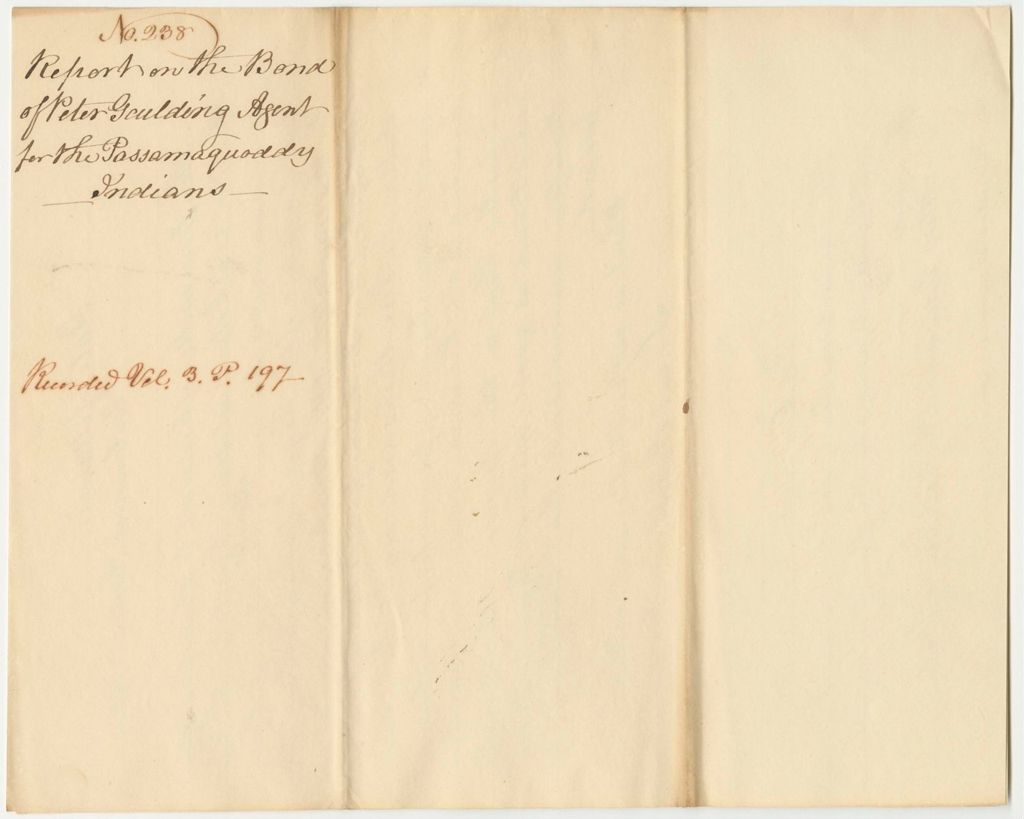 No. 238
Report on the Bond
of Peter Goulding Agent
for the Passamaquoddy
Indians
Recorded Vol. 3. P. 197